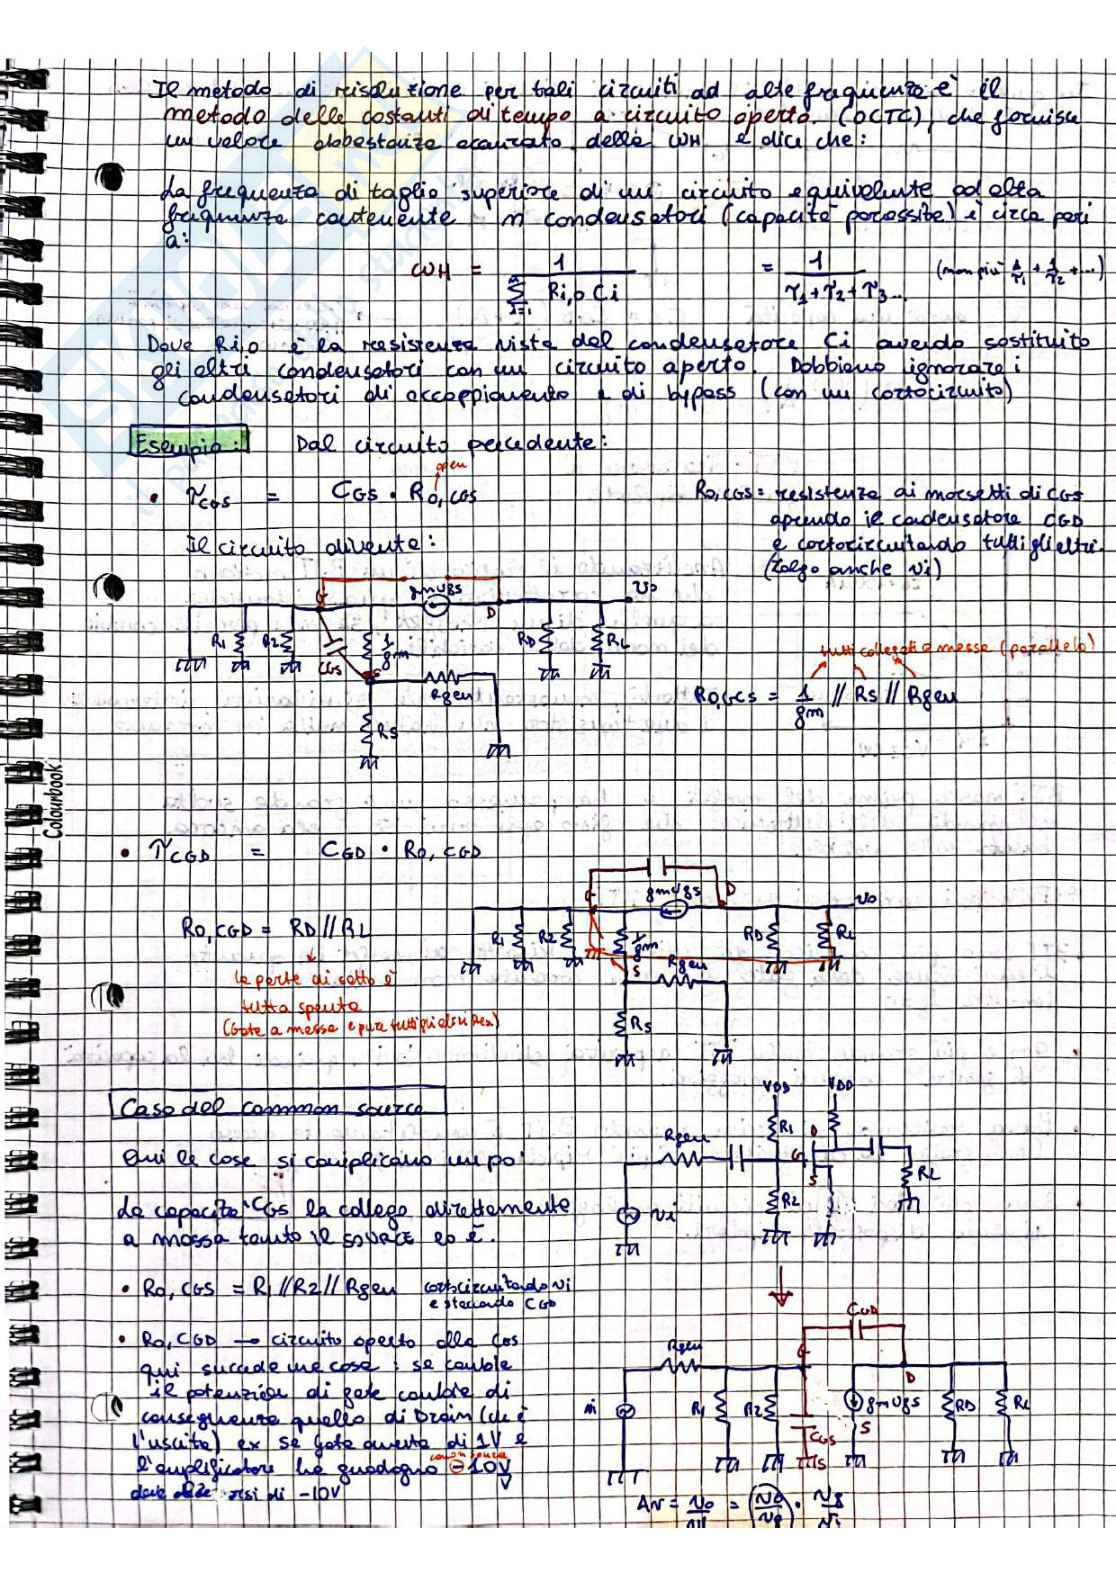 Il metodo di risoluzione per tali circuiti ad alte frequenze è il
metodo delle costanti di tempo a circuito aperto. (OCTC), che fornisce
un valore abbastanza accurato della ωH e dice che:
La frequenza di taglio superiore di un circuito equivalente ad alta
frequenza contenente n condensatori (capacità parassite) è circa pari
a:
ωH = 1 / Σ i=1 n Ri,o Ci = 1 / τ1+τ2+τ3... (non più 1/τ1 + 1/τ2 + ...)
Dove Ri,o è la resistenza vista dal condensatore Ci avendo sostituito
gli altri condensatori con un circuito aperto. Dobbiamo ignorare i
condensatori di accoppiamento e di bypass (con un cortocircuito)
Esempio: Dal circuito precedente:
open
• τCGS = CGS · RO,CGS
RO,CGS = resistenza ai morsetti di CGS
aprendo il condensatore CGD
e cortocircuitando tutti gli altri.
(tolgo anche vi)
Il circuito diventa:
G gmvgs D vo
R1 R2 CGS 1/gm RD RL
S Rgen
RS
tutti collegati a massa (parallelo)
RO,GCS = 1/gm // RS // Rgen
Colourbook
• τCGD = CGD · RO,CGD
G gmvgs D vo
R1 R2 1/gm RD RL
S Rgen
RS
RO,CGD = RD//RL
la parte di sotto è
tutta spenta
Caso del common source
Qui le cose si complicano un po'
La capacità CGS la collego direttamente
a massa tanto il SOURCE lo è.
VDD VDD
Rgen R1 D
G S RL
R2
vi
• RO,CGS = R1//R2//Rgen cortocircuitando vi
e staccando CGD
• RO,CGD → circuito aperto alla CGS
qui succede una cosa: se cambia
il potenziale di gate cambia di
conseguenza quello di Drain (che è
l'uscita) ex se Gate aumenta di 1V e
l'amplificatore ha guadagno -10 V/V
-10V
CGD
Rgen G D
vi R1 R2 gmvgs RD RL
CGS S
S
AV = vo/vi = (vo/vg) · vg/vi